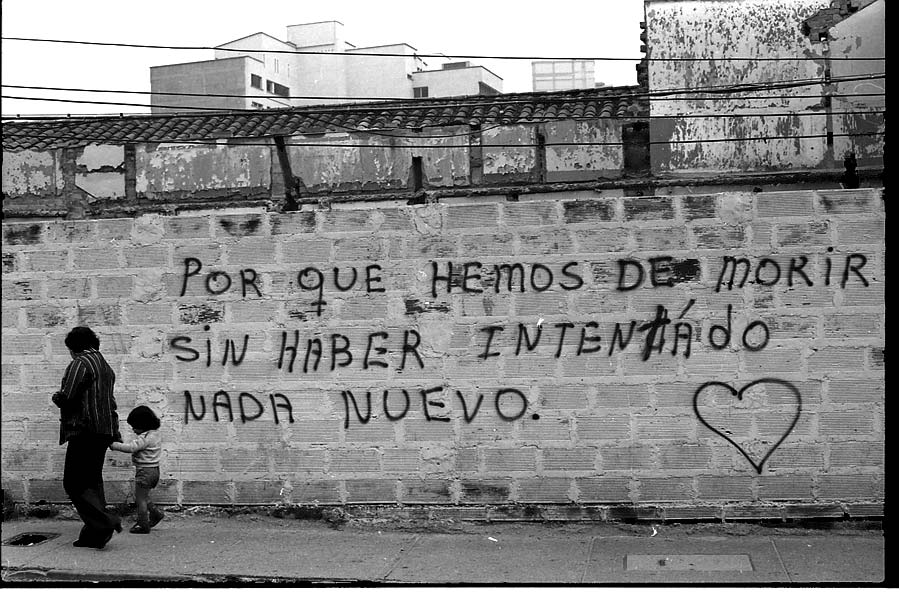 POR QUE HEMOS DE MORIR
SIN HABER INTENTÁDO
NADA NUEVO.